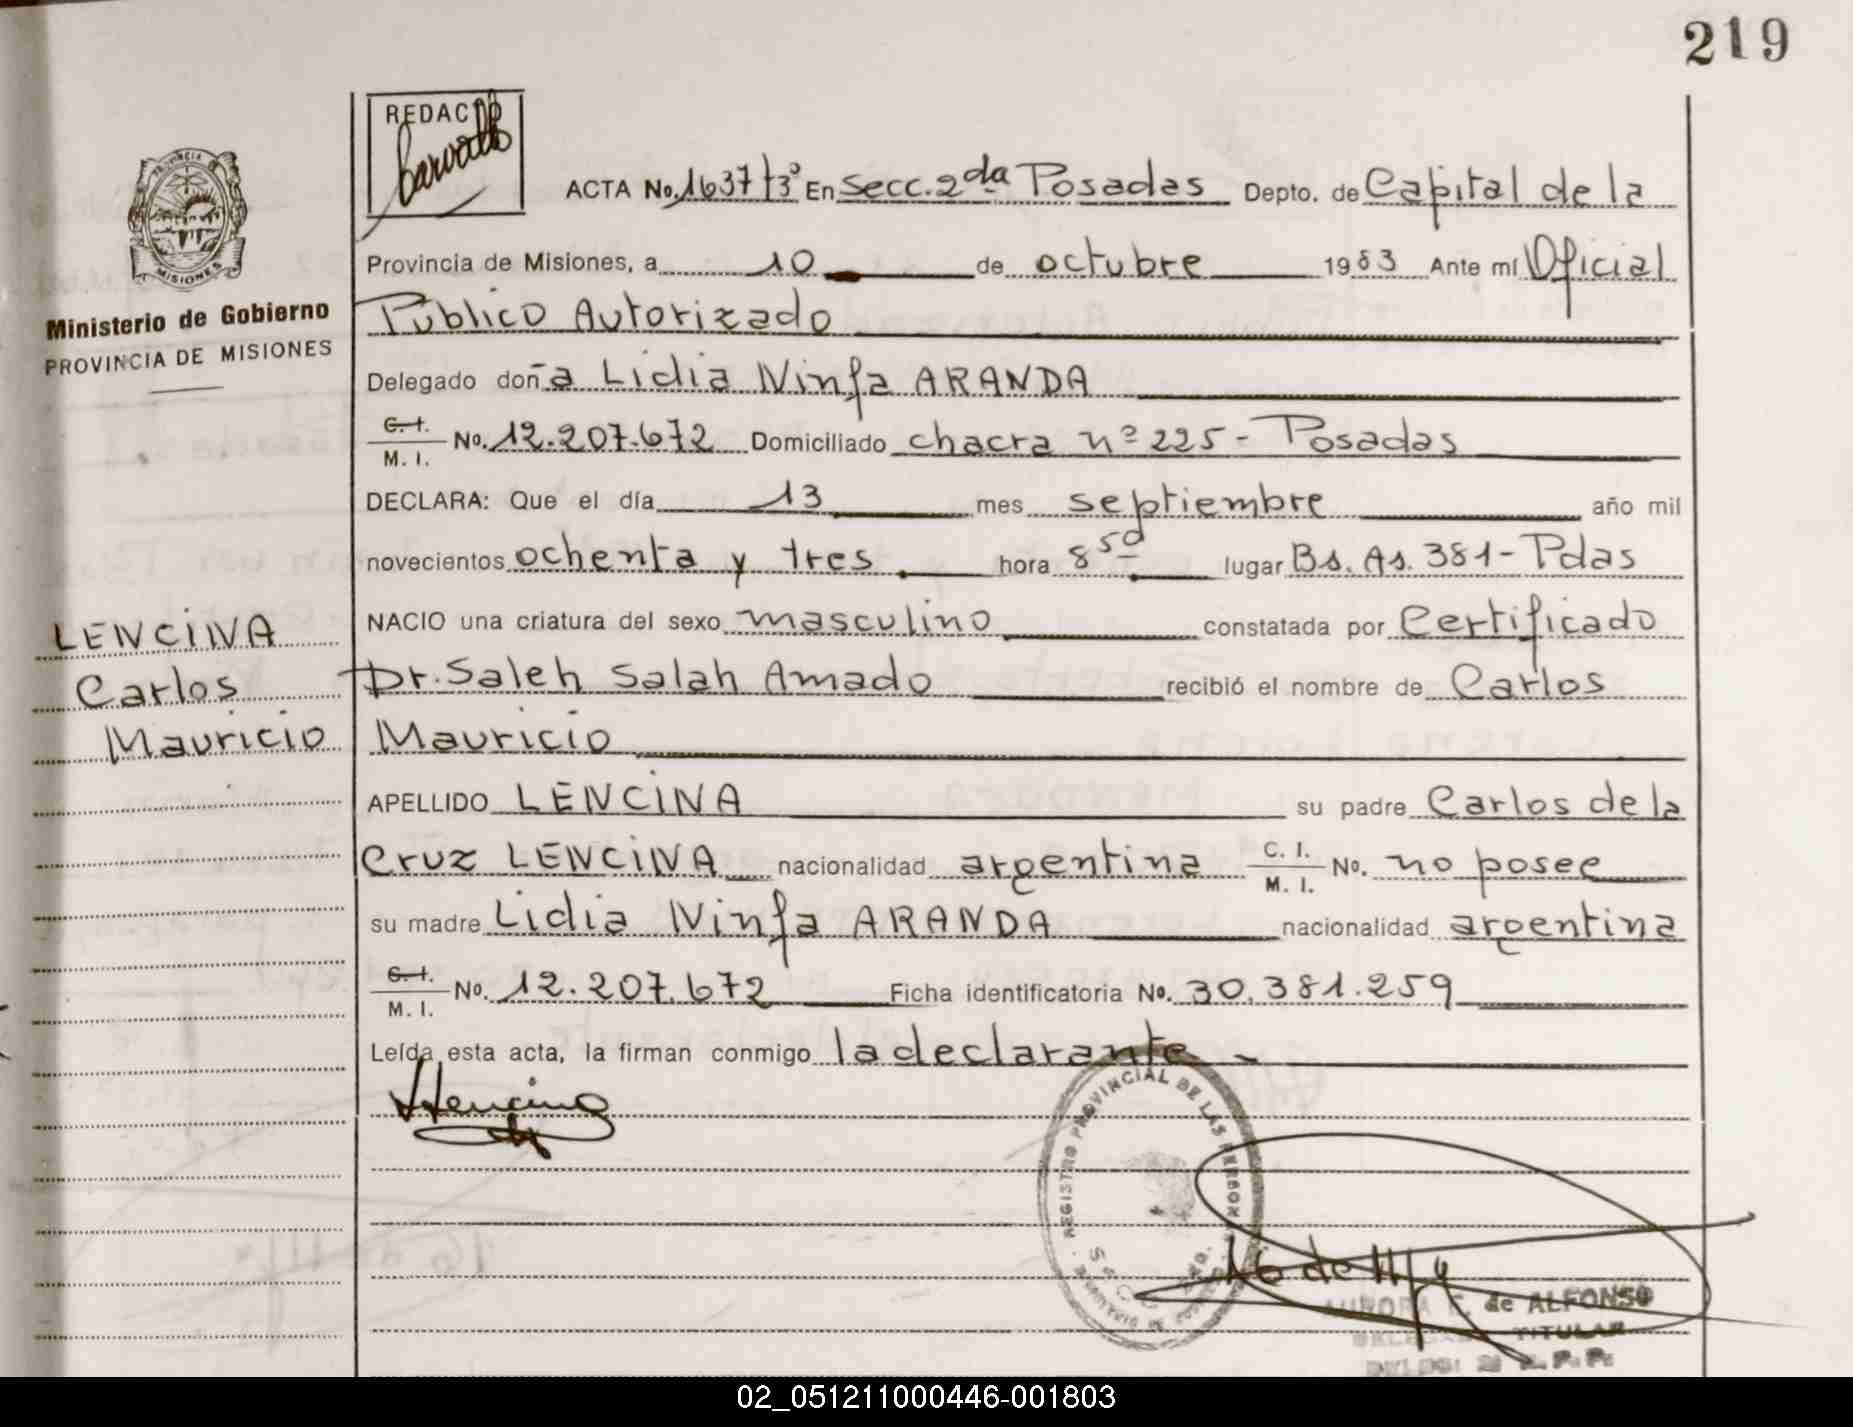 219
REDACTÓ
PROVINCIA DE
MISIONES
Ministerio de Gobierno
PROVINCIA DE MISIONES
LENCINA
Carlos
Mauricio
ACTA No. 1637 t3º En Secc. 2da Posadas Depto. de Capital de la
Provincia de Misiones, a 10 de octubre 1983 Ante mí Oficial
Público Autorizado
Delegado doña Lidia Ninfa ARANDA
C. I.
M. I. No. 12.207.672 Domiciliado chacra nº 225 - Posadas
DECLARA: Que el día 13 mes septiembre año mil
novecientos ochenta y tres hora 8 50 lugar Bs. As. 381 - Pdas
NACIO una criatura del sexo masculino constatada por Certificado
Dr. Saleh Salah Amado recibió el nombre de Carlos
Mauricio
APELLIDO LENCINA su padre Carlos de la
Cruz LENCINA nacionalidad argentina C. I. M. I. No. no posee
su madre Lidia Ninfa ARANDA nacionalidad argentina
C. I.
M. I. No. 12.207.672 Ficha identificatoria No. 30.381.259
Leída esta acta, la firman conmigo la declarante -
REGISTRO PROVINCIAL DE LAS PERSONAS
AURORA F. de ALFONSO
TITULAR
02_051211000446-001803